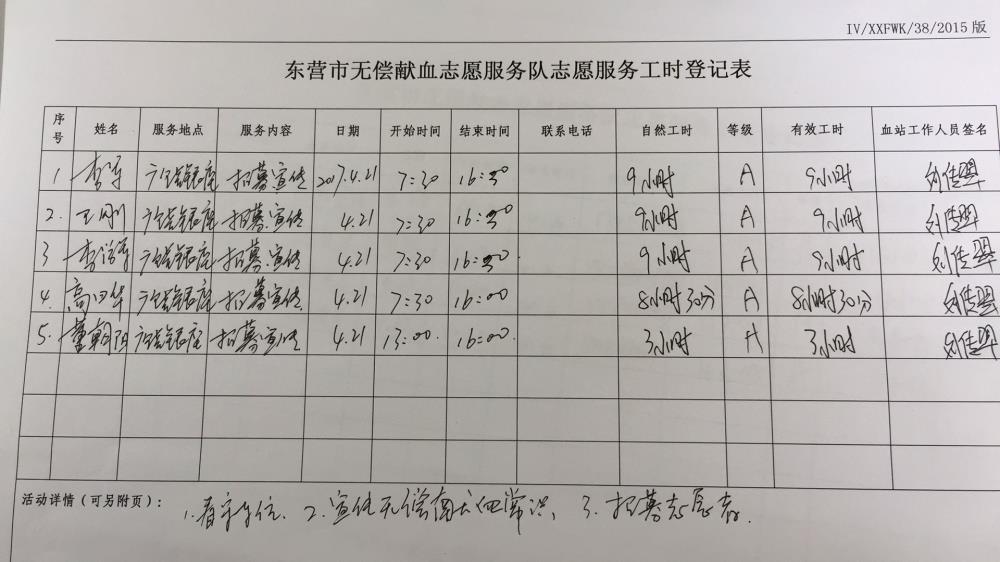 IV/XXFWK/38/2015 版
东营市无偿献血志愿服务队志愿服务工时登记表
序号 姓名 服务地点 服务内容 日期 开始时间 结束时间 联系电话 自然工时 等级 有效工时 血站工作人员签名
1 招募宣传 2017.4.21 7:30 16:30 9小时 A 9小时
2. 王刚 招募宣传 4.21 7:30 16:30 9小时 A 9小时
3 招募宣传 4.21 7:30 16:30 9小时 A 9小时
4. 招募宣传 4.21 7:30 16:00 8小时30分 A 8小时30分
5. 董朝阳 招募宣传 4.21 13:00 16:00 3小时 A 3小时
活动详情（可另附页）： 1. 2.宣传无偿献血常识、 3.招募志愿者.